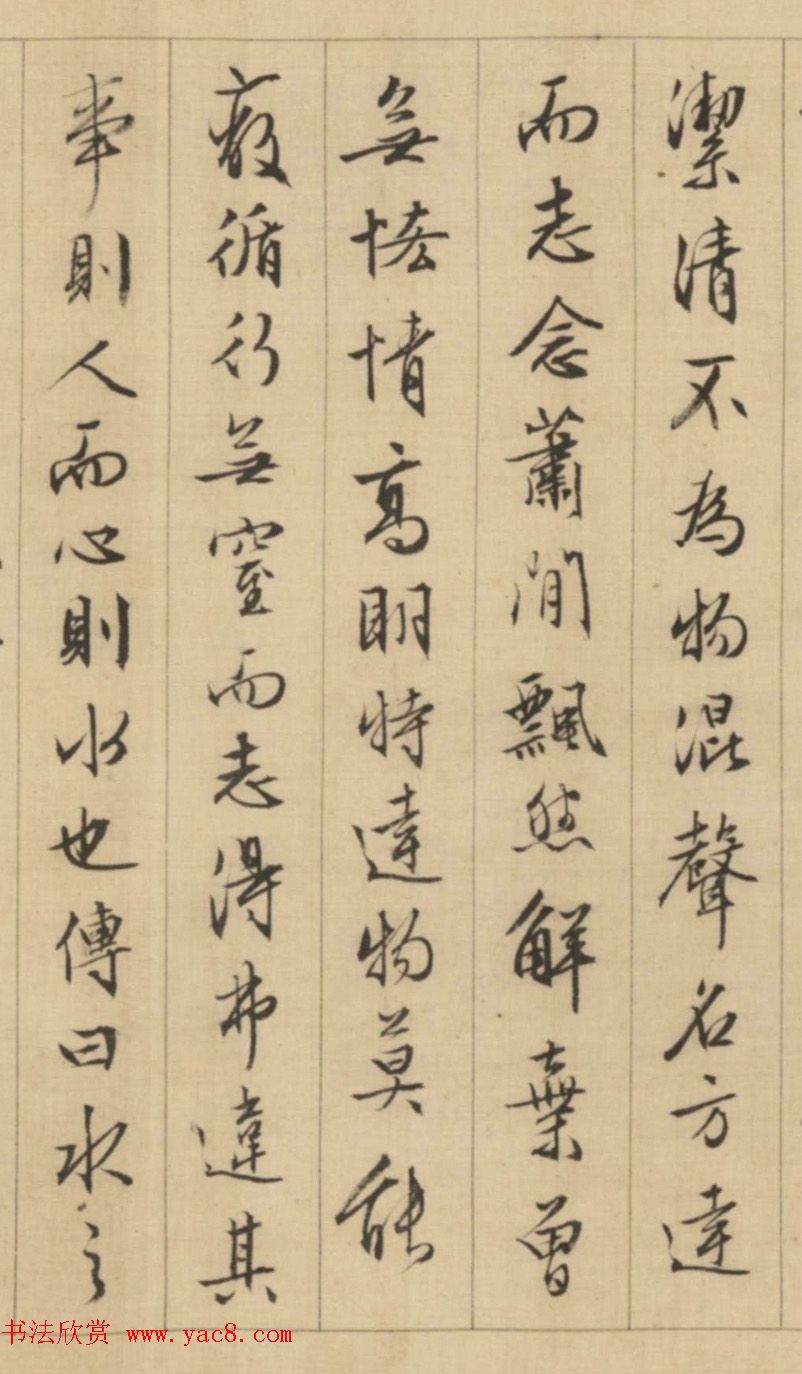 潔清不為物混聲名方達
而志念蕭閒飄然解棄曾
無恡情高明特達物莫能
蔽循行無窒而志得弗違其
事則人而心則水也傳曰水之
书法欣赏 www.yac8.com